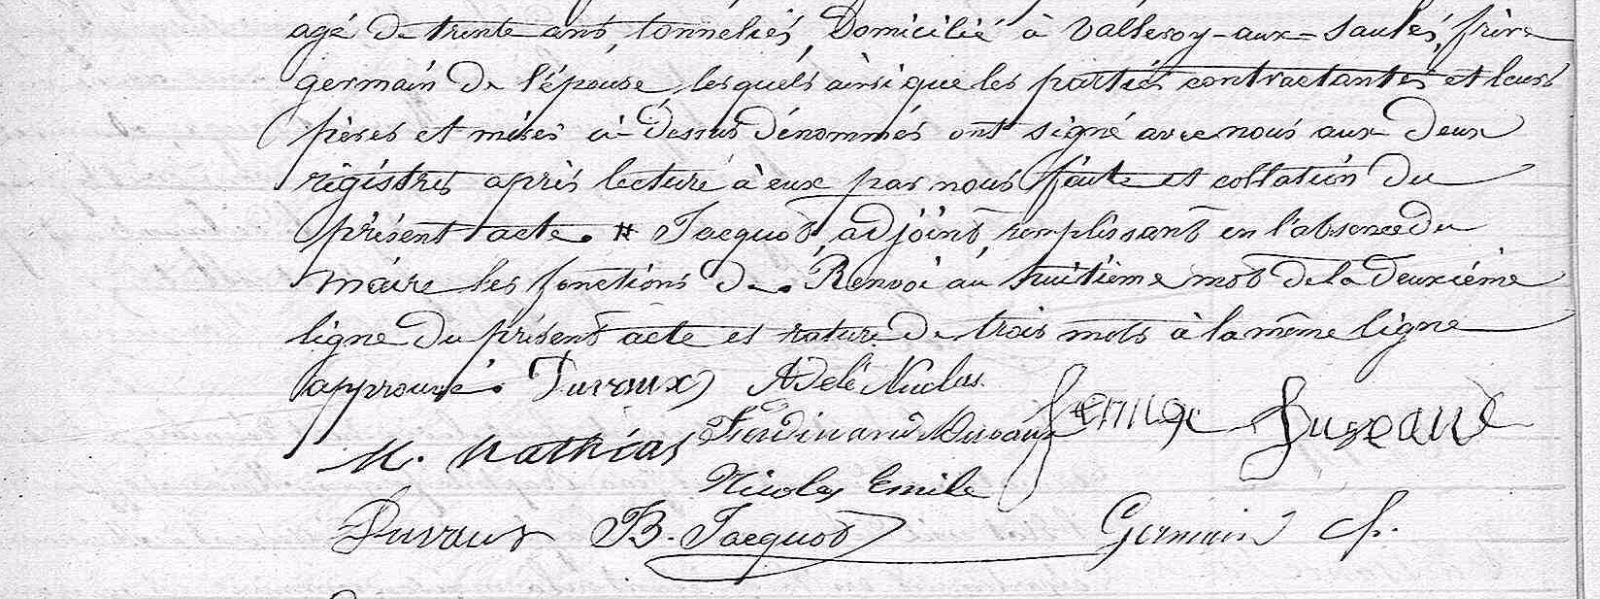 agé de trente ans, tonnelier, Domicilié à Valleroy-aux-Saules, frère
germain de l'épouse, lesquels ainsi que les parties contractantes et leurs
pères et mères ci-dessus dénommés ont signé avec nous aux deux
registres après lecture à eux par nous faite et collation du
présent acte. # Jacquot, adjoint, remplissant en l'absence du
maire les fonctions de. Renvoi au huitième mot de la deuxième
ligne du présent acte et rature de trois mots à la même ligne
approuvé. Duvaux Adele
M. Mathias Ferdinand Duvaux
Nicolas Emile
Duvaux B. Jacquot Germain Ch.